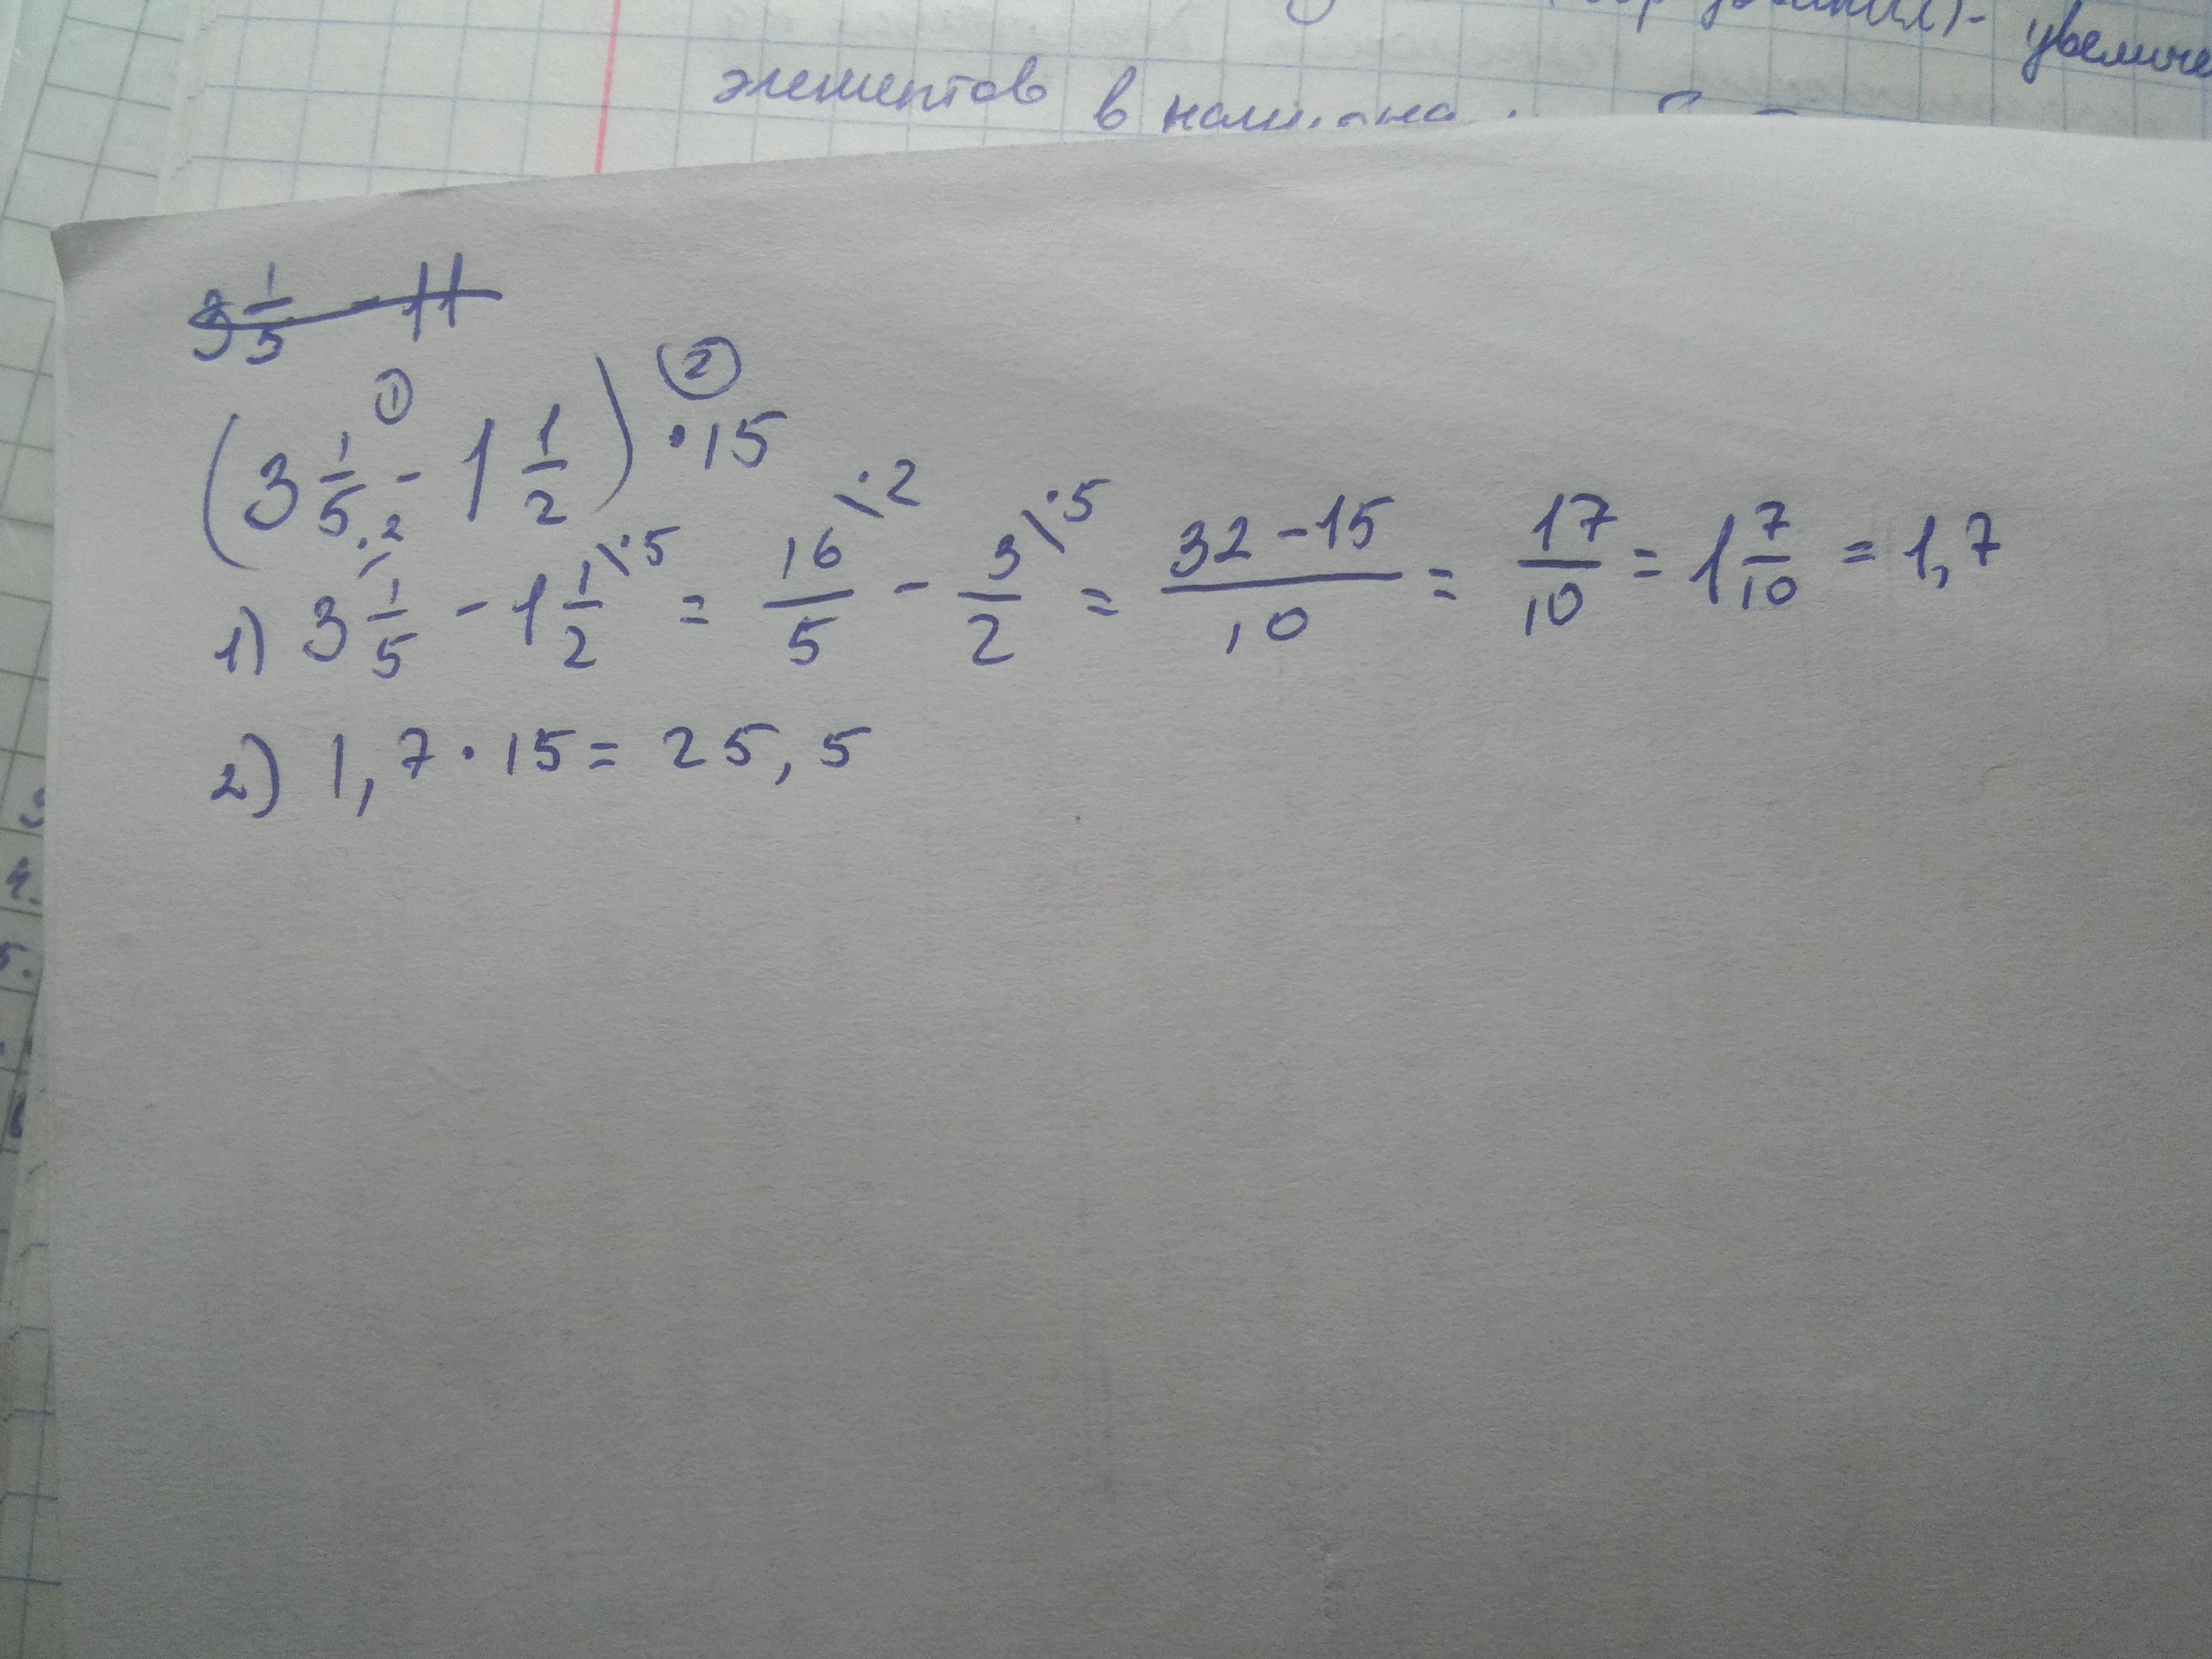 увеличе
элементов в
3 1/5 - 11
① ②
(3 1/5 - 1 1/2) · 15
1) 3 1/5 \·2 - 1 1/2 \·5 = 16/5 \·2 - 3/2 \·5 = (32 - 15)/10 = 17/10 = 1 7/10 = 1,7
2) 1,7 · 15 = 25,5
4.
5.